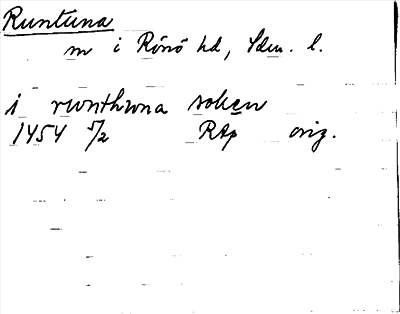 Runtuna
sn i Rönö hd, Sdm. l.
i rwnthwna soken
1454 5/2 RAp orig.